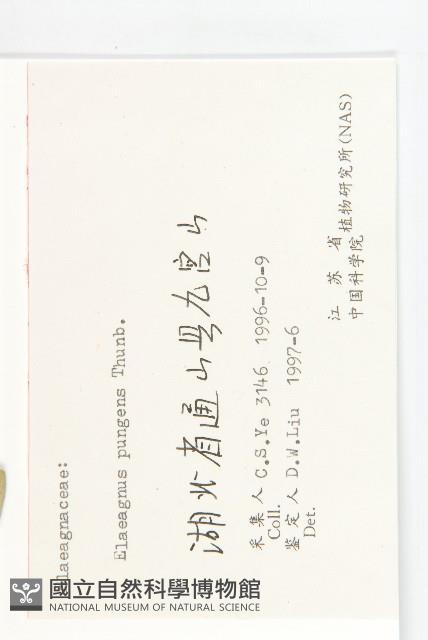 laeagnaceae:
Elaeagnus pungens Thunb.
湖北省通山县九宫山
采集人 C.S.Ye 3146 1996-10-9
Coll.
鉴定人 D.W.Liu 1997-6
Det.
江苏省
中国科学院 植物研究所(NAS)
國立自然科學博物館
NATIONAL MUSEUM OF NATURAL SCIENCE